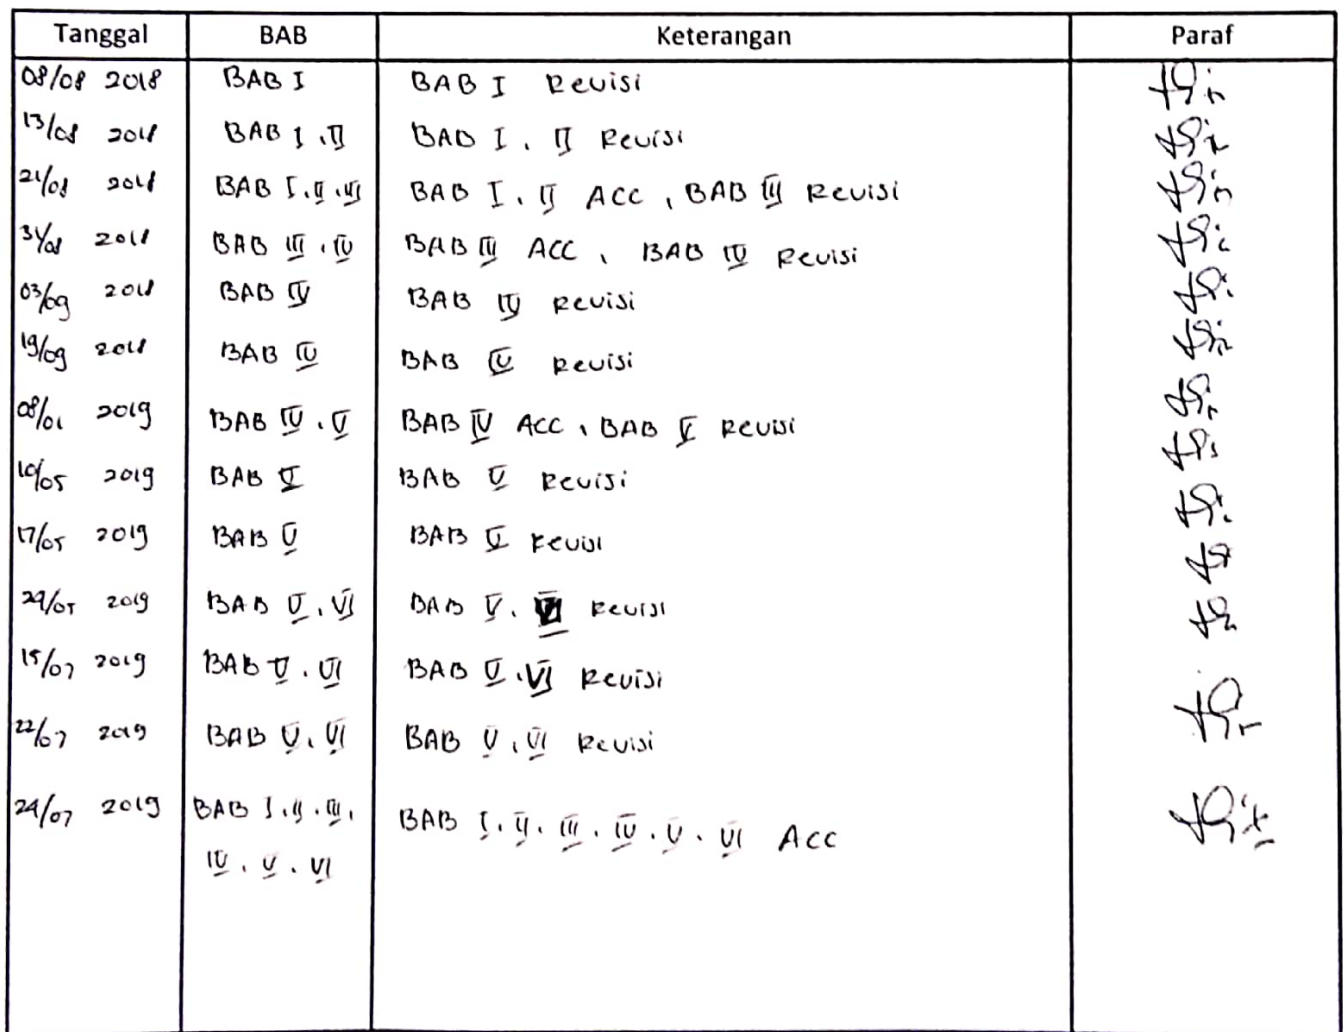 Tanggal BAB Keterangan Paraf
08/08 2018 BAB I BAB I Revisi
13/08 2018 BAB I, II BAB I, II Revisi
21/08 2018 BAB I, II, III BAB I, II ACC, BAB III Revisi
31/08 2018 BAB III, IV BAB III ACC, BAB IV Revisi
03/09 2018 BAB IV BAB IV Revisi
19/09 2018 BAB IV BAB IV Revisi
08/01 2019 BAB IV, V BAB IV ACC, BAB V Revisi
10/05 2019 BAB V BAB V Revisi
17/05 2019 BAB V BAB V Revisi
29/05 2019 BAB V, VI BAB V, VI Revisi
15/07 2019 BAB V, VI BAB V, VI Revisi
22/07 2019 BAB V, VI BAB V, VI Revisi
24/07 2019 BAB I, II, III, BAB I, II, III, IV, V, VI ACC
IV, V, VI